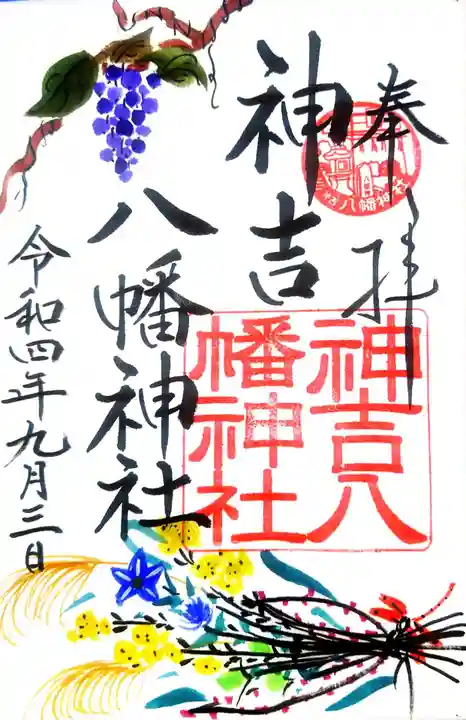 奉拝
神吉
八幡神社
令和四年九月三日
神吉八
幡神社